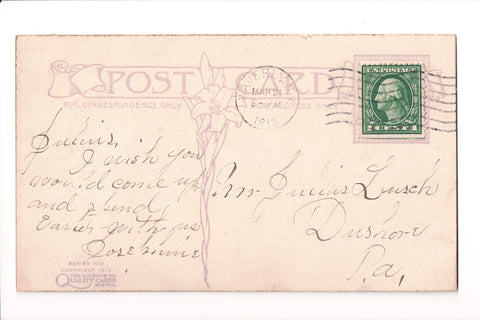 POST CARD
FOR CORRESPONDENCE ONLY
FOR ADDRESS ONLY
MAR 21
1913
U.S. POSTAGE
1 CENT 1
Julius,
I wish you
would come up
and spend
Easter with us
Josephine
Mr Julius Lusch
Dushore
Pa.
SERIES 209
COPYRIGHT 1912
QUALITY CARDS
BOSTON